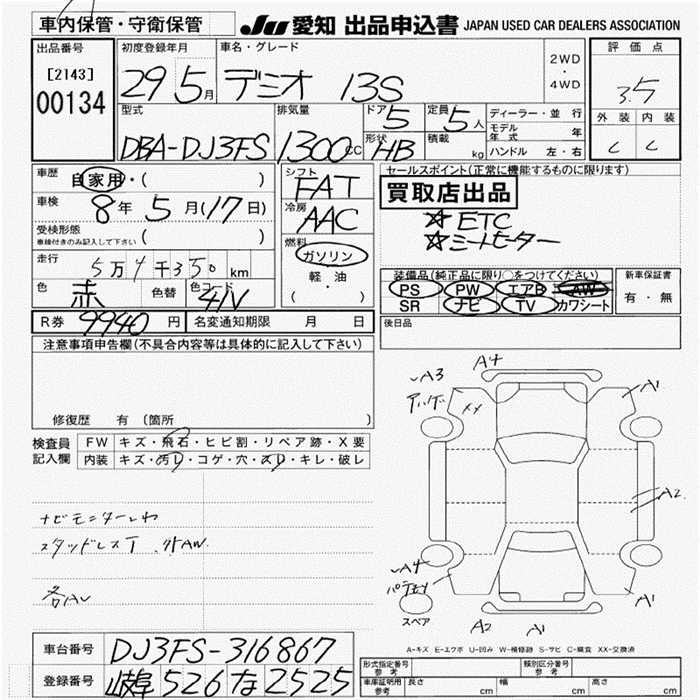 車内保管・守衛保管
JU 愛知 出品申込書 JAPAN USED CAR DEALERS ASSOCIATION
出品番号 初度登録年月 車名・グレード 2WD・4WD 評価点
[2143] 00134 29 5月 デミオ 13S 3.5
型式 排気量 ドア 5 定員 5人 ディーラー・並行 外装 内装
DBA-DJ3FS 1300cc 形状 HB 積載 kg モデル年式 年 C C
ハンドル 左・右
車歴 自家用・( ) シフト FAT セールスポイント(正常に機能するものに限ります)
車検 8年 5月(17日) 冷房 AAC 買取店出品
受検形態 ☆ETC
車検付きのみ記入して下さい ( ) 燃料 ☆シートヒーター
走行 5万4千350km ガソリン
軽・油
( )
色 赤 色替 色コード 41V
装備品(純正品に限り○をつけてください) 新車保証書
PS PW エアB AW 有・無
SR ナビ TV カワシート
R券 9940円 名変通知期限 月 日 後日品
注意事項申告欄(不具合内容等は具体的に記入して下さい)
修復歴 有 (箇所 )
検査員記入欄 FW キズ・飛石・ヒビ割・リペア跡・X要
内装 キズ・汚レ・コゲ・穴・スレ・キレ・破レ
スタッドレスT 外AW
A4
A3
XX
A1
A2
A4
スペア
A2
A1
A1
A-キズ E-エクボ U-凹み W-補修跡 S-サビ C-腐食 XX-交換済
車台番号 DJ3FS-316867
登録番号 岐阜 526 な 2525
形式指定番号 参考 類別区分番号 参考
車庫証明用 参考 長さ cm 幅 cm 高さ cm